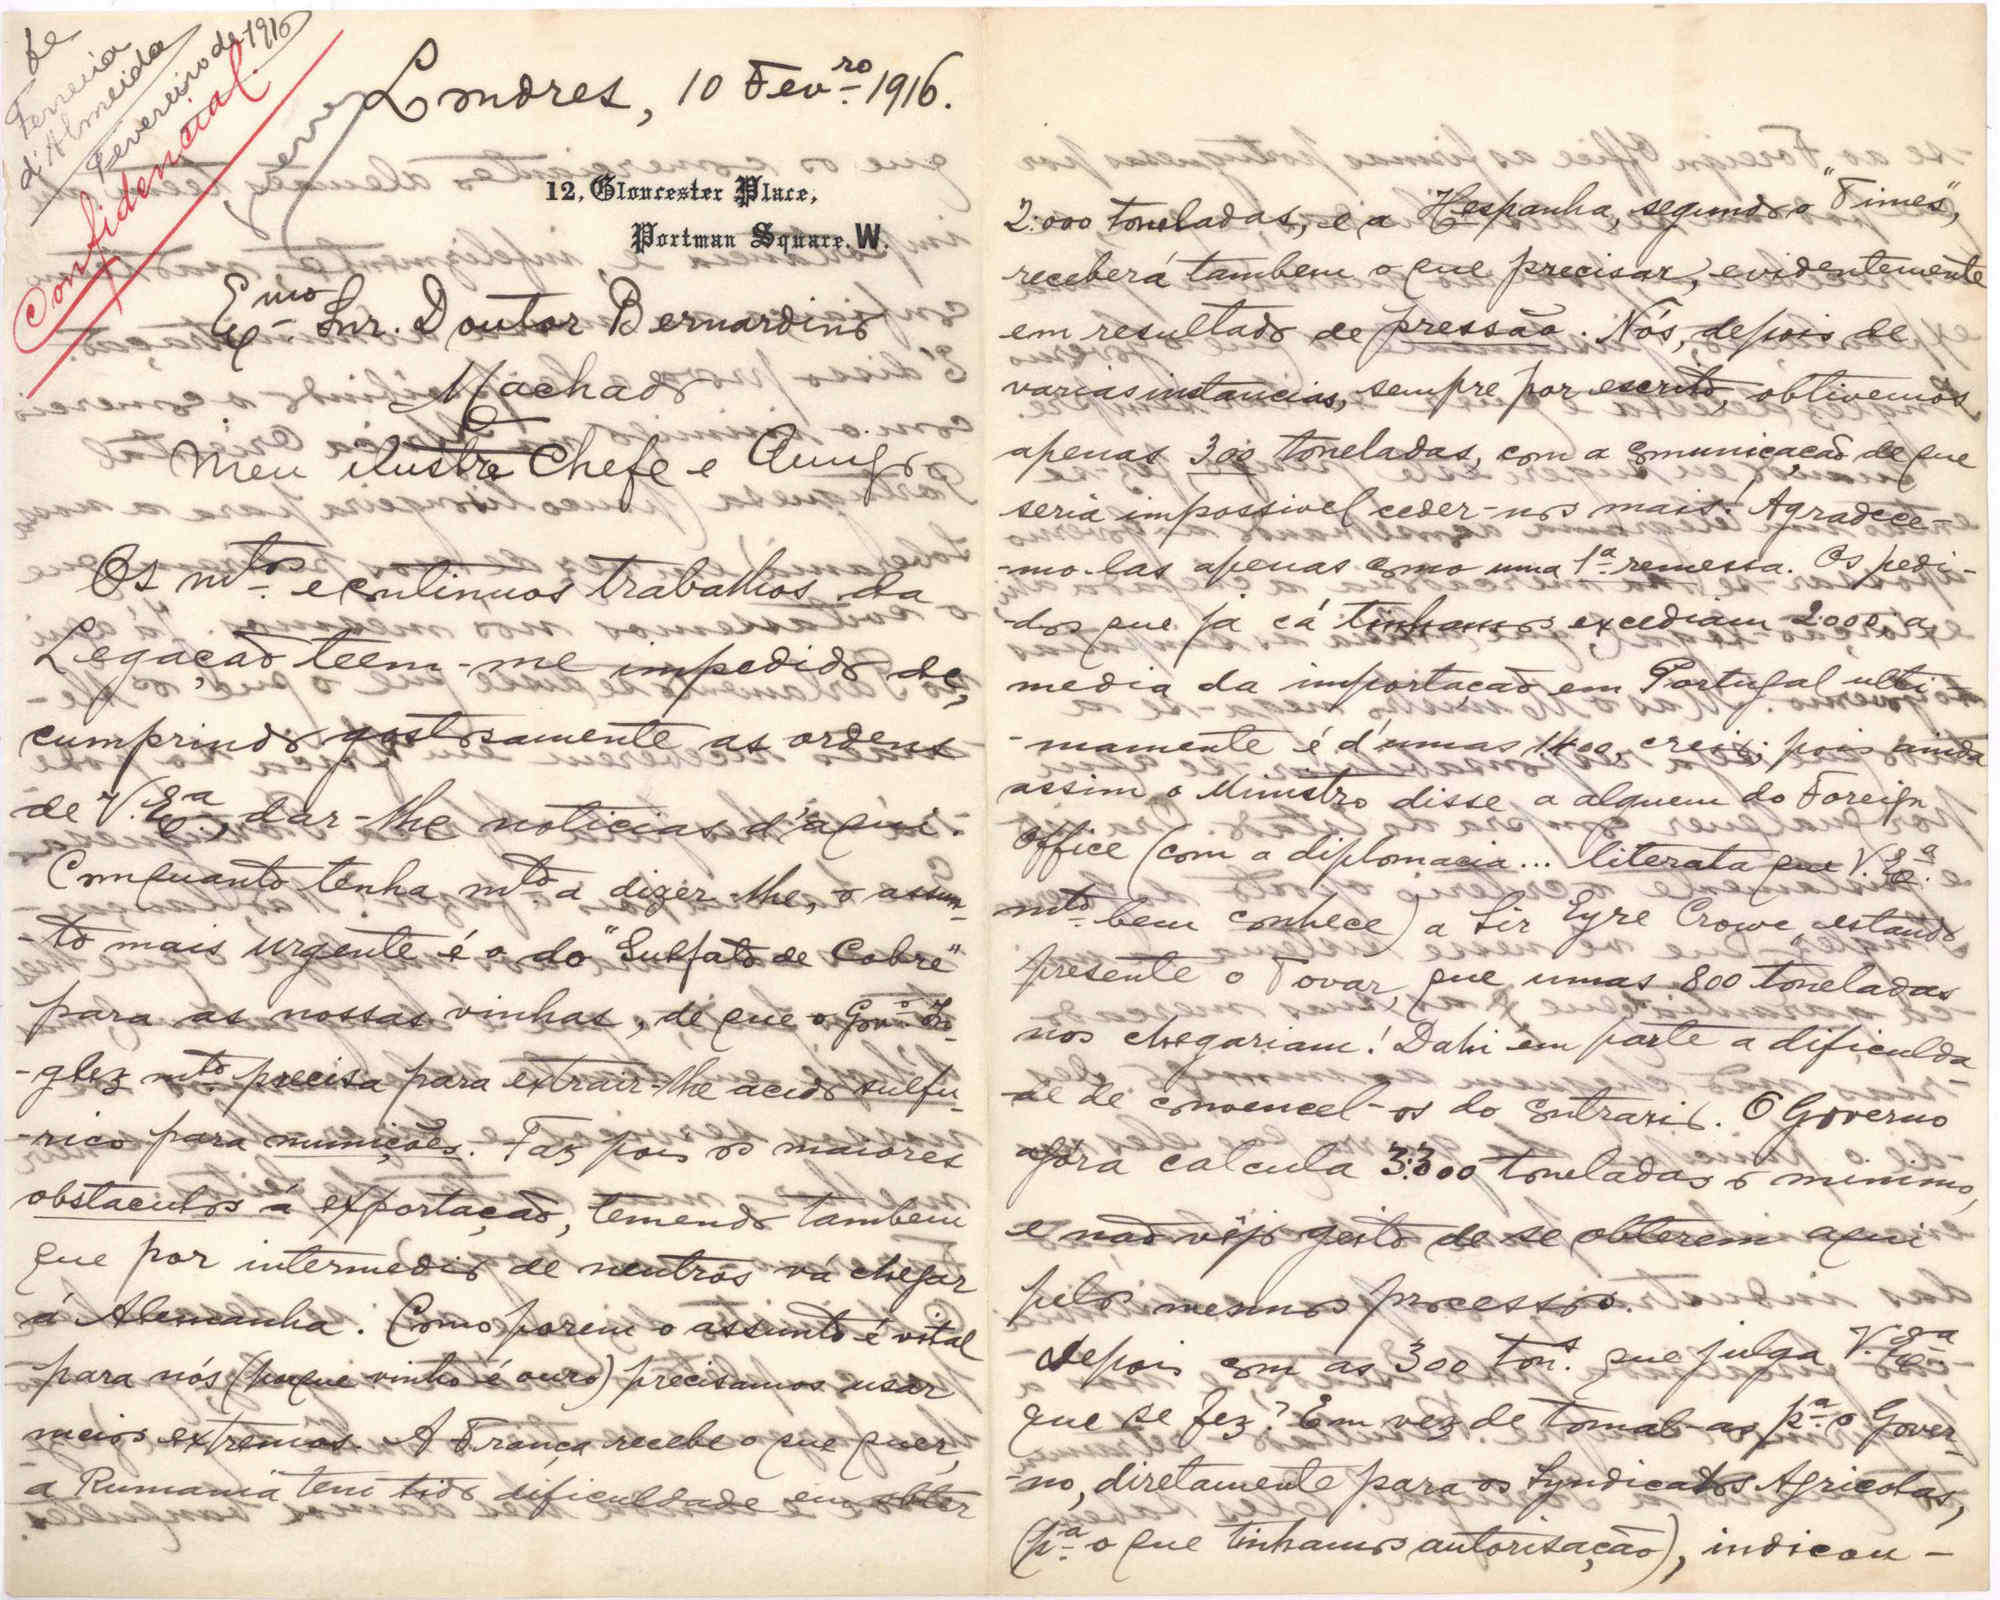 de
Ferreira
d'Almeida
Fevereiro de 1916
Confidencial.
Londres, 10 Fev.ro 1916.
12, Gloucester Place,
Portman Square. W.
Ex.mo Snr. Doutor Bernardino
Machado
Meu ilustre Chefe e Amigo
Os mtos. e continuos trabalhos da
Legação teem-me impedido de,
cumprindo gostosamente as ordens
de V. Ex.a, dar-lhe noticias d'aqui.
Conquanto tenha mto. a dizer-lhe, o assum-
-to mais urgente é o do "Sulfato de Cobre"
para as nossas vinhas, de que o Gov.o In-
-glez mto. precisa para extrair-lhe acido sulfu-
-rico para munições. Faz pois os maiores
obstaculos á exportação, temendo tambem
que por intermedio de neutros vá chegar
á Alemanha. Como porem o assunto é vital
para nós (porque vinho é ouro) precisamos usar
meios extremos. A França recebe o que quer,
a Rumania tem tido dificuldade em obter
2:000 toneladas, e a Hespanha, segundo o "Times",
receberá tambem o que precisar, evidentemente
em resultado de pressão. Nós, depois de
varias instancias, sempre por escrito, obtivemos
apenas 300 toneladas, com a comunicação de que
seria impossivel ceder-nos mais! Agradece-
-mo-las apenas como uma 1.a remessa. Os pedi-
-dos que já cá tinhamos excediam 2:000, a
media da importação em Portugal ulti-
-mamente é d'umas 1400, creio; pois ainda
assim o Ministro disse a alguem do Foreign
Office (com a diplomacia... literata que V. Ex.a
mto. bem conhece) a Sir Eyre Crowe, estando
presente o Tovar, que umas 800 toneladas
nos chegariam! Dahi em parte a dificulda-
-de de convencel-os do contrario. O Governo
agora calcula 3:300 toneladas o minimo,
e não vejo geito de se obterem aqui
pelos mesmos processos.
Depois com as 300 ton.s que julga V. Ex.a
que se fez? Em vez de tomal-as p.a o Gover-
-no, diretamente para os Syndicatos Agricolas,
(p.a o que tinhamos autorisação), indicou-